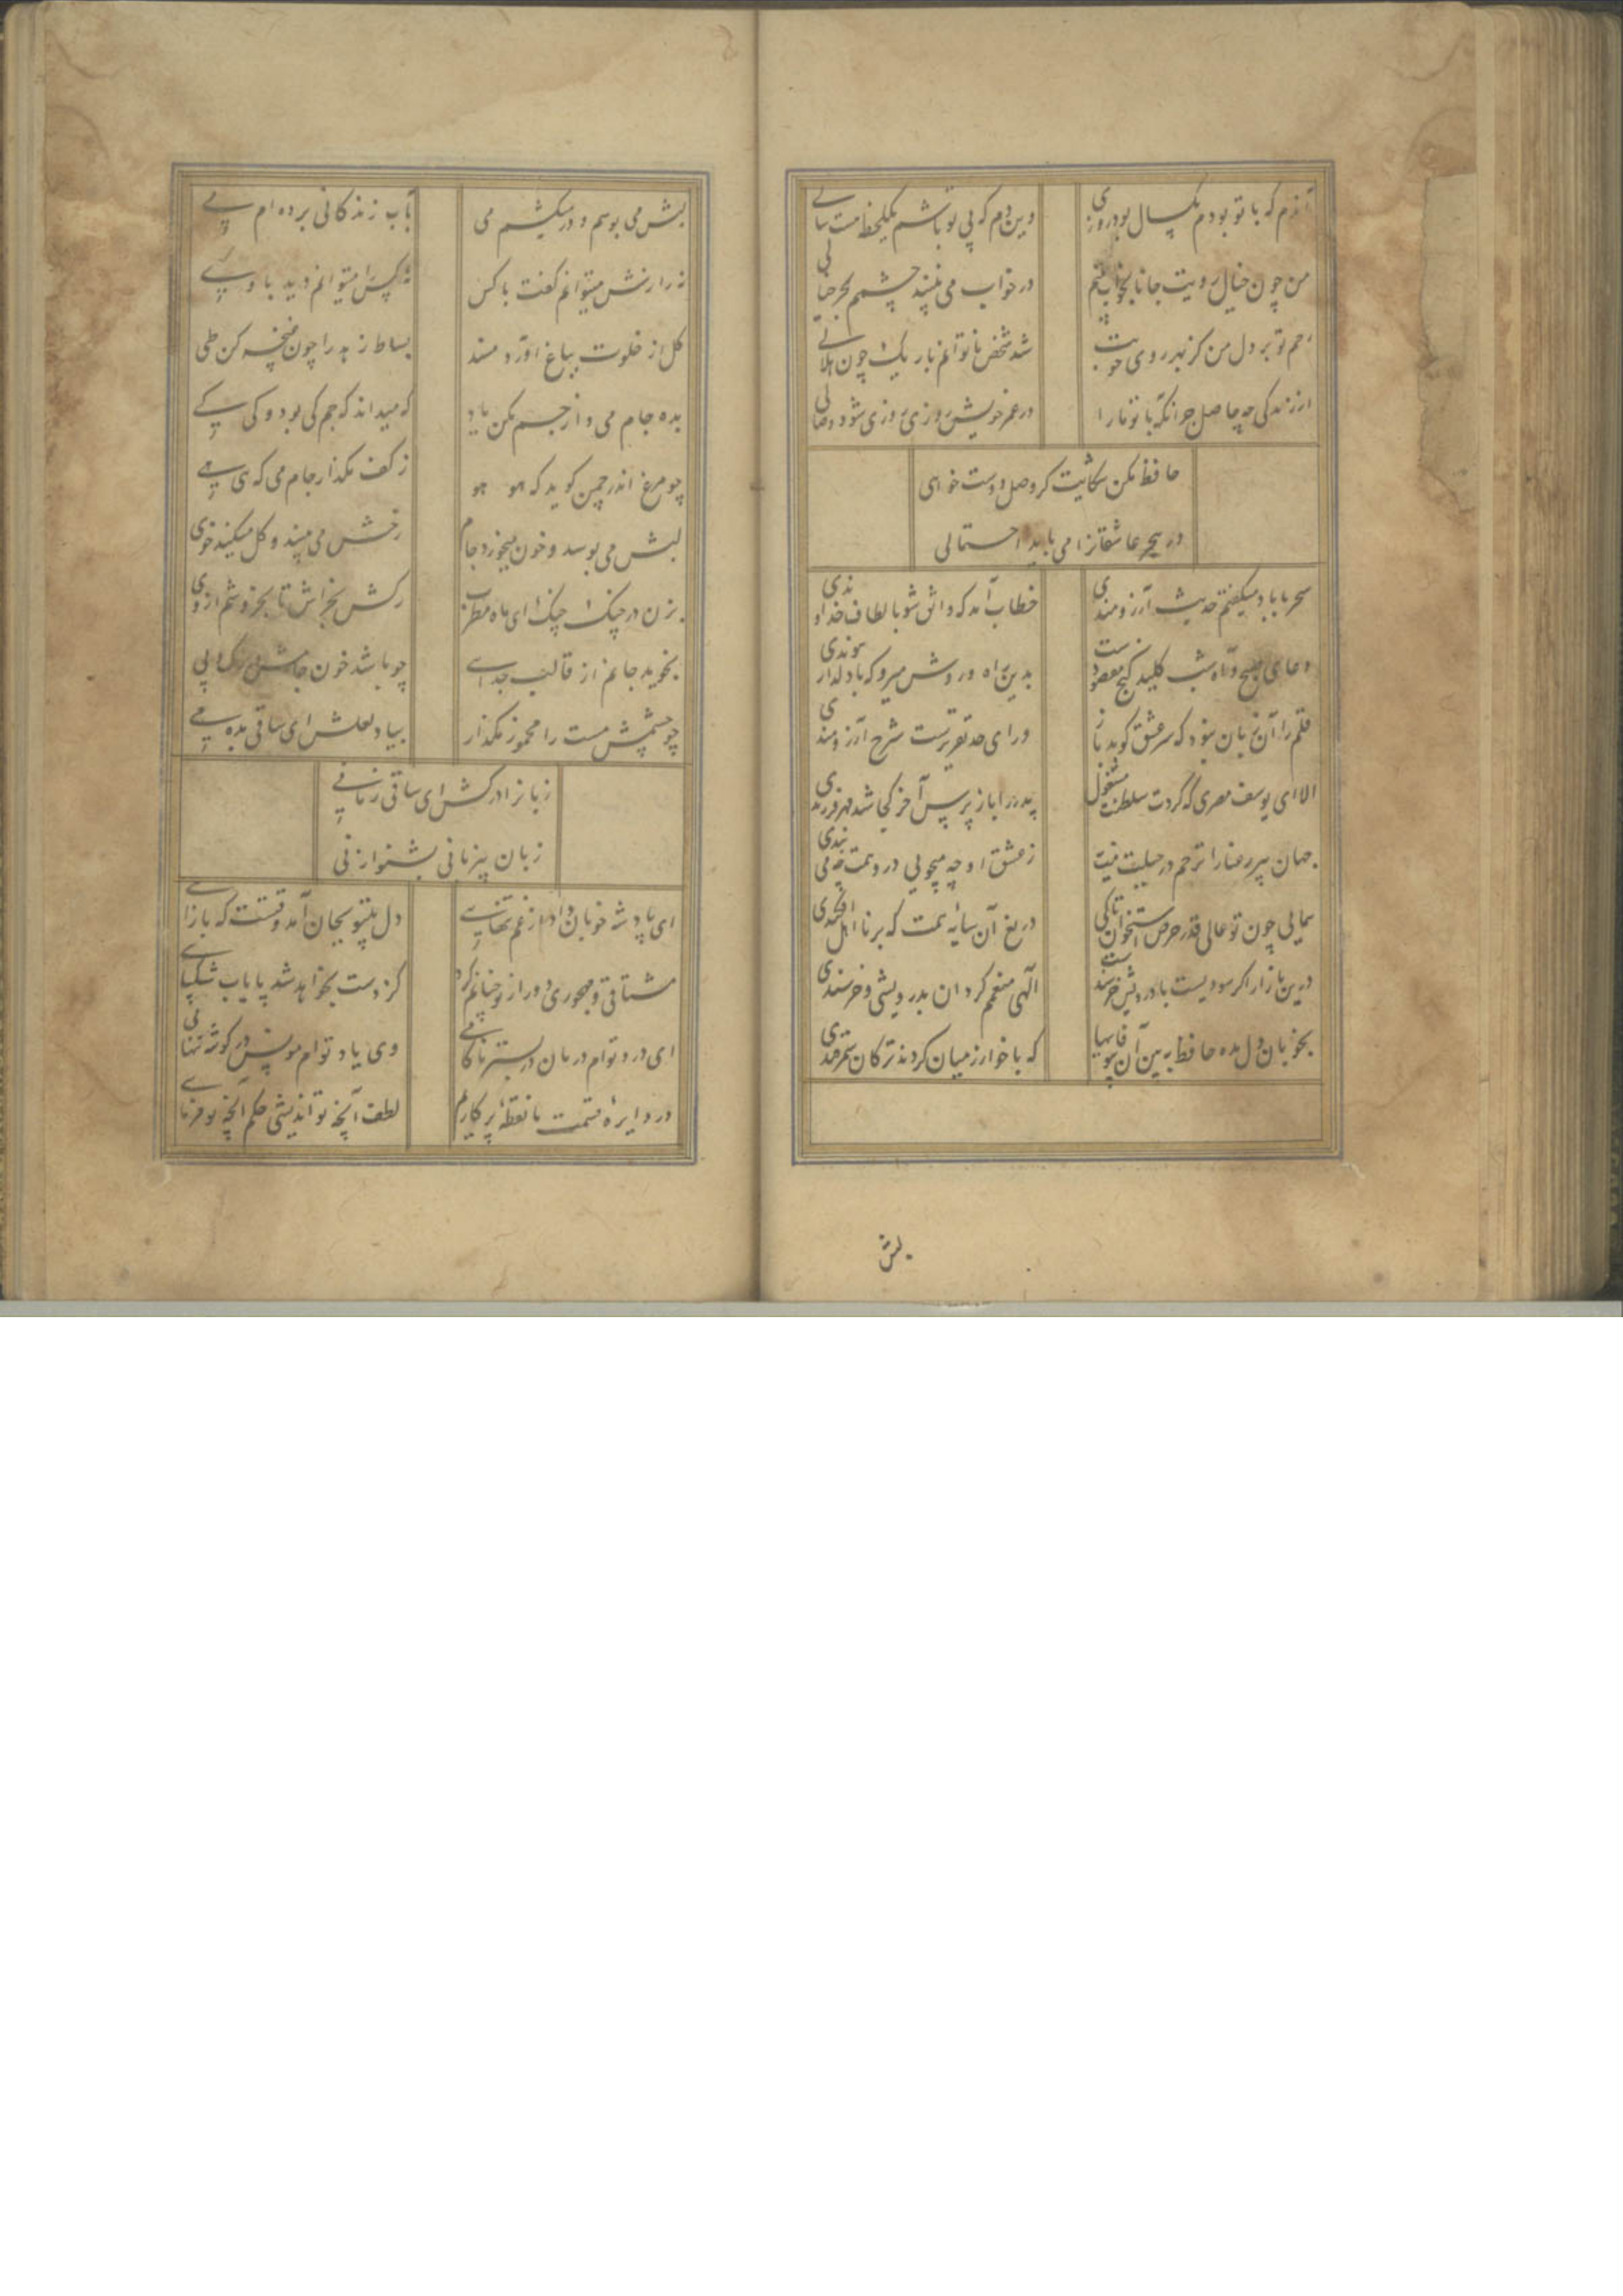 آندم که با تو بودم یکسال بود روزی
وین دم که بی تو باشم یکلحظه هست سالی
من چون خیال رویت جانا بخواب بینم
در خواب می نبیند چشمم بجز خیالی
رحم تو بر دل من کز مهر روی خوبت
شد شخص ناتوانم باریک چون هلالی
حافظ مکن شکایت کر وصل دوست خواهی
در هجر عاشقانرا می باید احتمالی
سحر با باد میکفتم حدیث آرزومندی
خطاب آمد که واثق شو بالطاف خداوندی
دعای صبح و آه شب کلید کنج مقصودست
بدین راه و روش میرو که با دلدار پیوندی
قلم را آن زبان نبود که سر عشق کوید باز
ورای حد تقریرست شرح آرزومندی
الا ای یوسف مصری که کردت سلطنت مشغول
پدر را باز پرس آخر کجا شد مهر فرزندی
جهان پیر رعنا را ترحم در جبلت نیست
ز عشق او چه میجویی در و همت چه می بندی
همایی چون تو عالی قدر حرص استخوان تا کی
دریغ آن سایه همت که بر نااهل افکندی
درین بازار اکر سودیست با درویش خرسندست
الهی منعمم کردان بدرویشی و خرسندی
بخوبان دل مده حافظ ببین آن بیوفاییها
که با خوارزمیان کردند ترکان سمرقندی
لبش
لبش می بوسم و در میکشم می
بآب زندکانی برده ام پی
نه رازش میتوانم کفت با کس
نه کس را میتوانم دید با وی
کل از خلوت بباغ آورد مسند
بساط زهد را چون غنچه کن طی
بده جام می و از جم مکن یاد
که میداند که جم کی بود و کی کی
چو مرغ اندر چمن کوید که هو هو
ز کف مکذار جام می که هی هی
لبش می بوسد و خون میخورد جام
رخش می بیند و کل میکند خوی
بزن در چنک چنک ای ماه مطرب
رکش بخراش تا بخروشم از وی
نجوید جانم از قالب جدایی
چو باشد خون جامش در رک و پی
چو چشمش مست را مخمور مکذار
بیاد لعلش ای ساقی بده می
زبانرا درکش ای ساقی زمانی
زبان بیزبانی بشنو از نی
ای پادشه خوبان داد از غم تنهایی
دل بیتو بجان آمد وقتست که بازآیی
مشتاقی و مهجوری دور از تو چنانم کرد
کز دست بخواهد شد پایاب شکیبایی
ای درد توام درمان در بستر ناکامی
وی یاد توام مونس در کوشه تنهایی
در دایره قسمت ما نقطه پرکاریم
لطف آنچه تو اندیشی حکم آنچه تو فرمایی